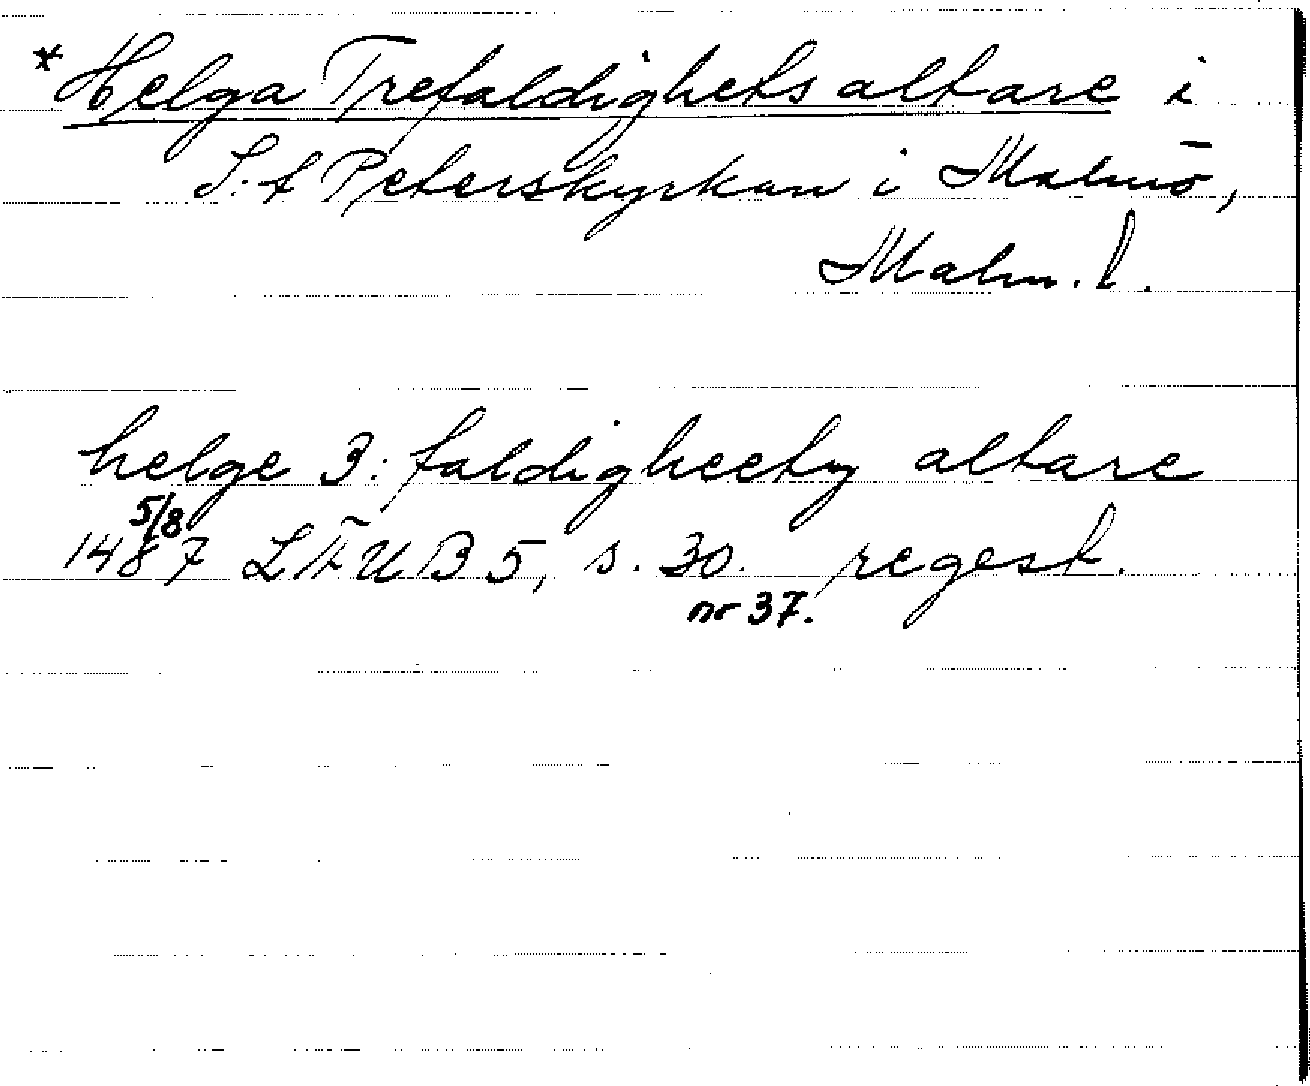 * Helga Trefaldighets altare i
S:t Peterskyrkan i Malmö,
Malm. l.
helge 3: faldigheety altare
5/8
1487 LÄUB 5, s. 30. regest.
nr 37.